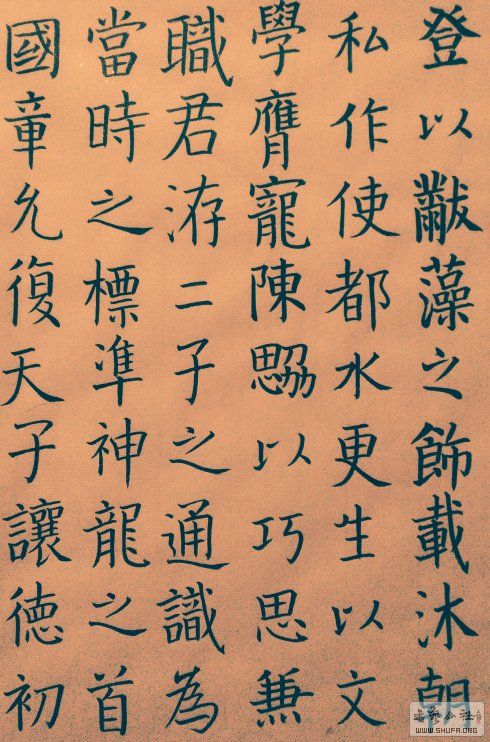 登以黻藻之飾載沐朝
私作使都水更生以文
學膺寵陳勰以巧思兼
職君洊二子之通識為
當時之標準神龍之首
國章允復天子讓德初
WWW.SHUFA.ORG